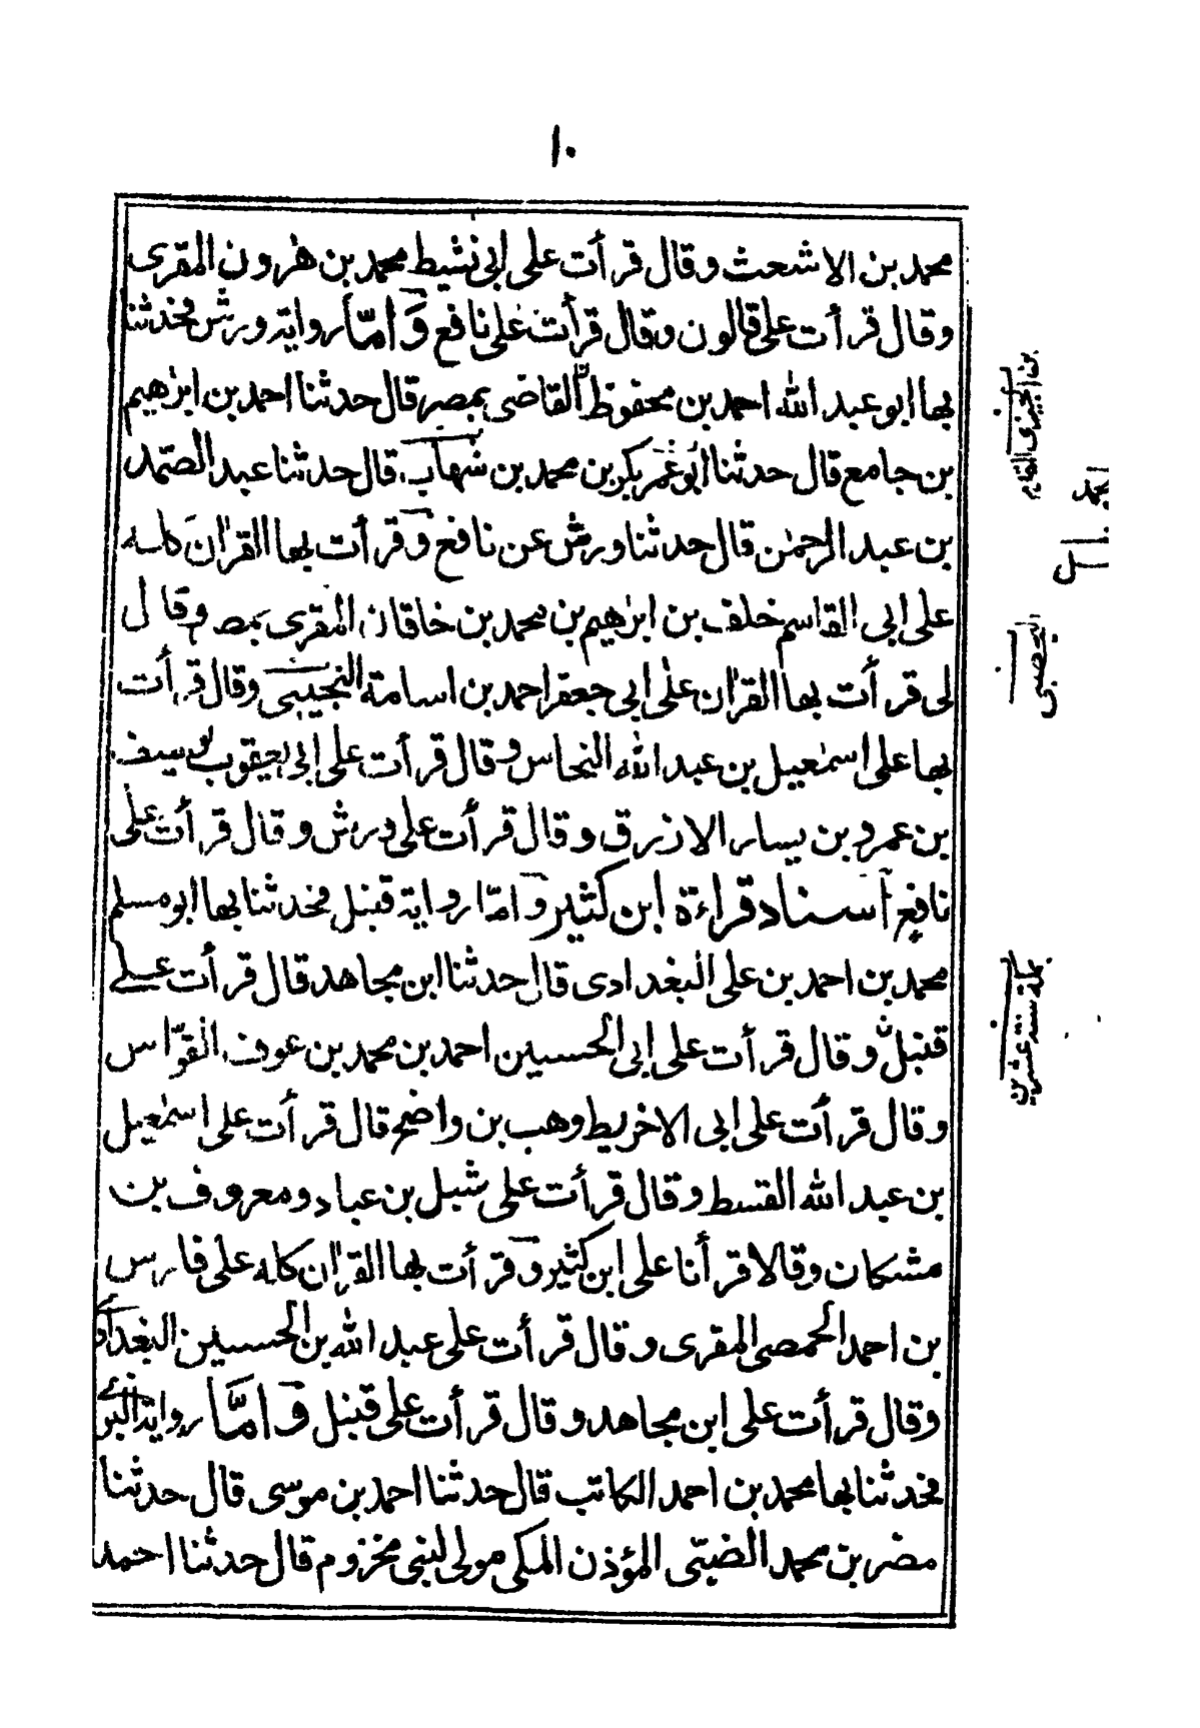 ١٠
محمد بن الاشعث وقال قرأت على ابى نشيط محمد بن هٰرون المقرى
وقال قرأت على قالون وقال قرأت على نافع وَامّا رواية ورش فحدثنا
بها ابو عبد الله احمد بن محفوظ القاضى بمصر قال حدثنا احمد بن ابرٰهيم
بن جامع قال حدثنا ابو محمد بكر بن محمد بن شهاب قال حدثنا عبد الصّمد
بن عبد الرحمٰن قال حدثنا ورش عن نافع وقرأت بها القرٰان كله
على ابى القاسم خلف بن ابرٰهيم بن محمد بن خاقان المقرى بمصر وقال
لى قرأت بها القرٰان على ابى جعفر احمد بن اسامة التجيبى وقال قرأت
بها على اسمٰعيل بن عبد الله النحاس وقال قرأت على ابى يعقوب يوسف
بن عمرو بن يسار الازرق وقال قرأت على ورش وقال قرأت على
نافع اسناد قراءة ابن كثير وامّا رواية قنبل فحدثنا بها ابو مسلم
محمد بن احمد بن على البغدادى قال حدثنا ابن مجاهد قال قرأت على
قنبل وقال قرأت على ابى الحسين احمد بن محمد بن عوف القوّاس
وقال قرأت على ابى الاخريط وهب بن واضح قال قرأت على اسمٰعيل
بن عبد الله القسط وقال قرأت على شبل بن عباد ومعروف بن
مشكان وقالا قرأنا على ابن كثير وقرأت بها القرٰان كله على فارس
بن احمد الحمصى المقرى وقال قرأت على عبد الله بن الحسين البغدادى
وقال قرأت على ابن مجاهد وقال قرأت على قنبل وَامَّا رواية البزى
فحدثنا بها محمد بن احمد الكاتب قال حدثنا احمد بن موسى قال حدثنا
مضر بن محمد الضبّى المؤذن المكى مولى لبنى مخزوم قال حدثنا احمد